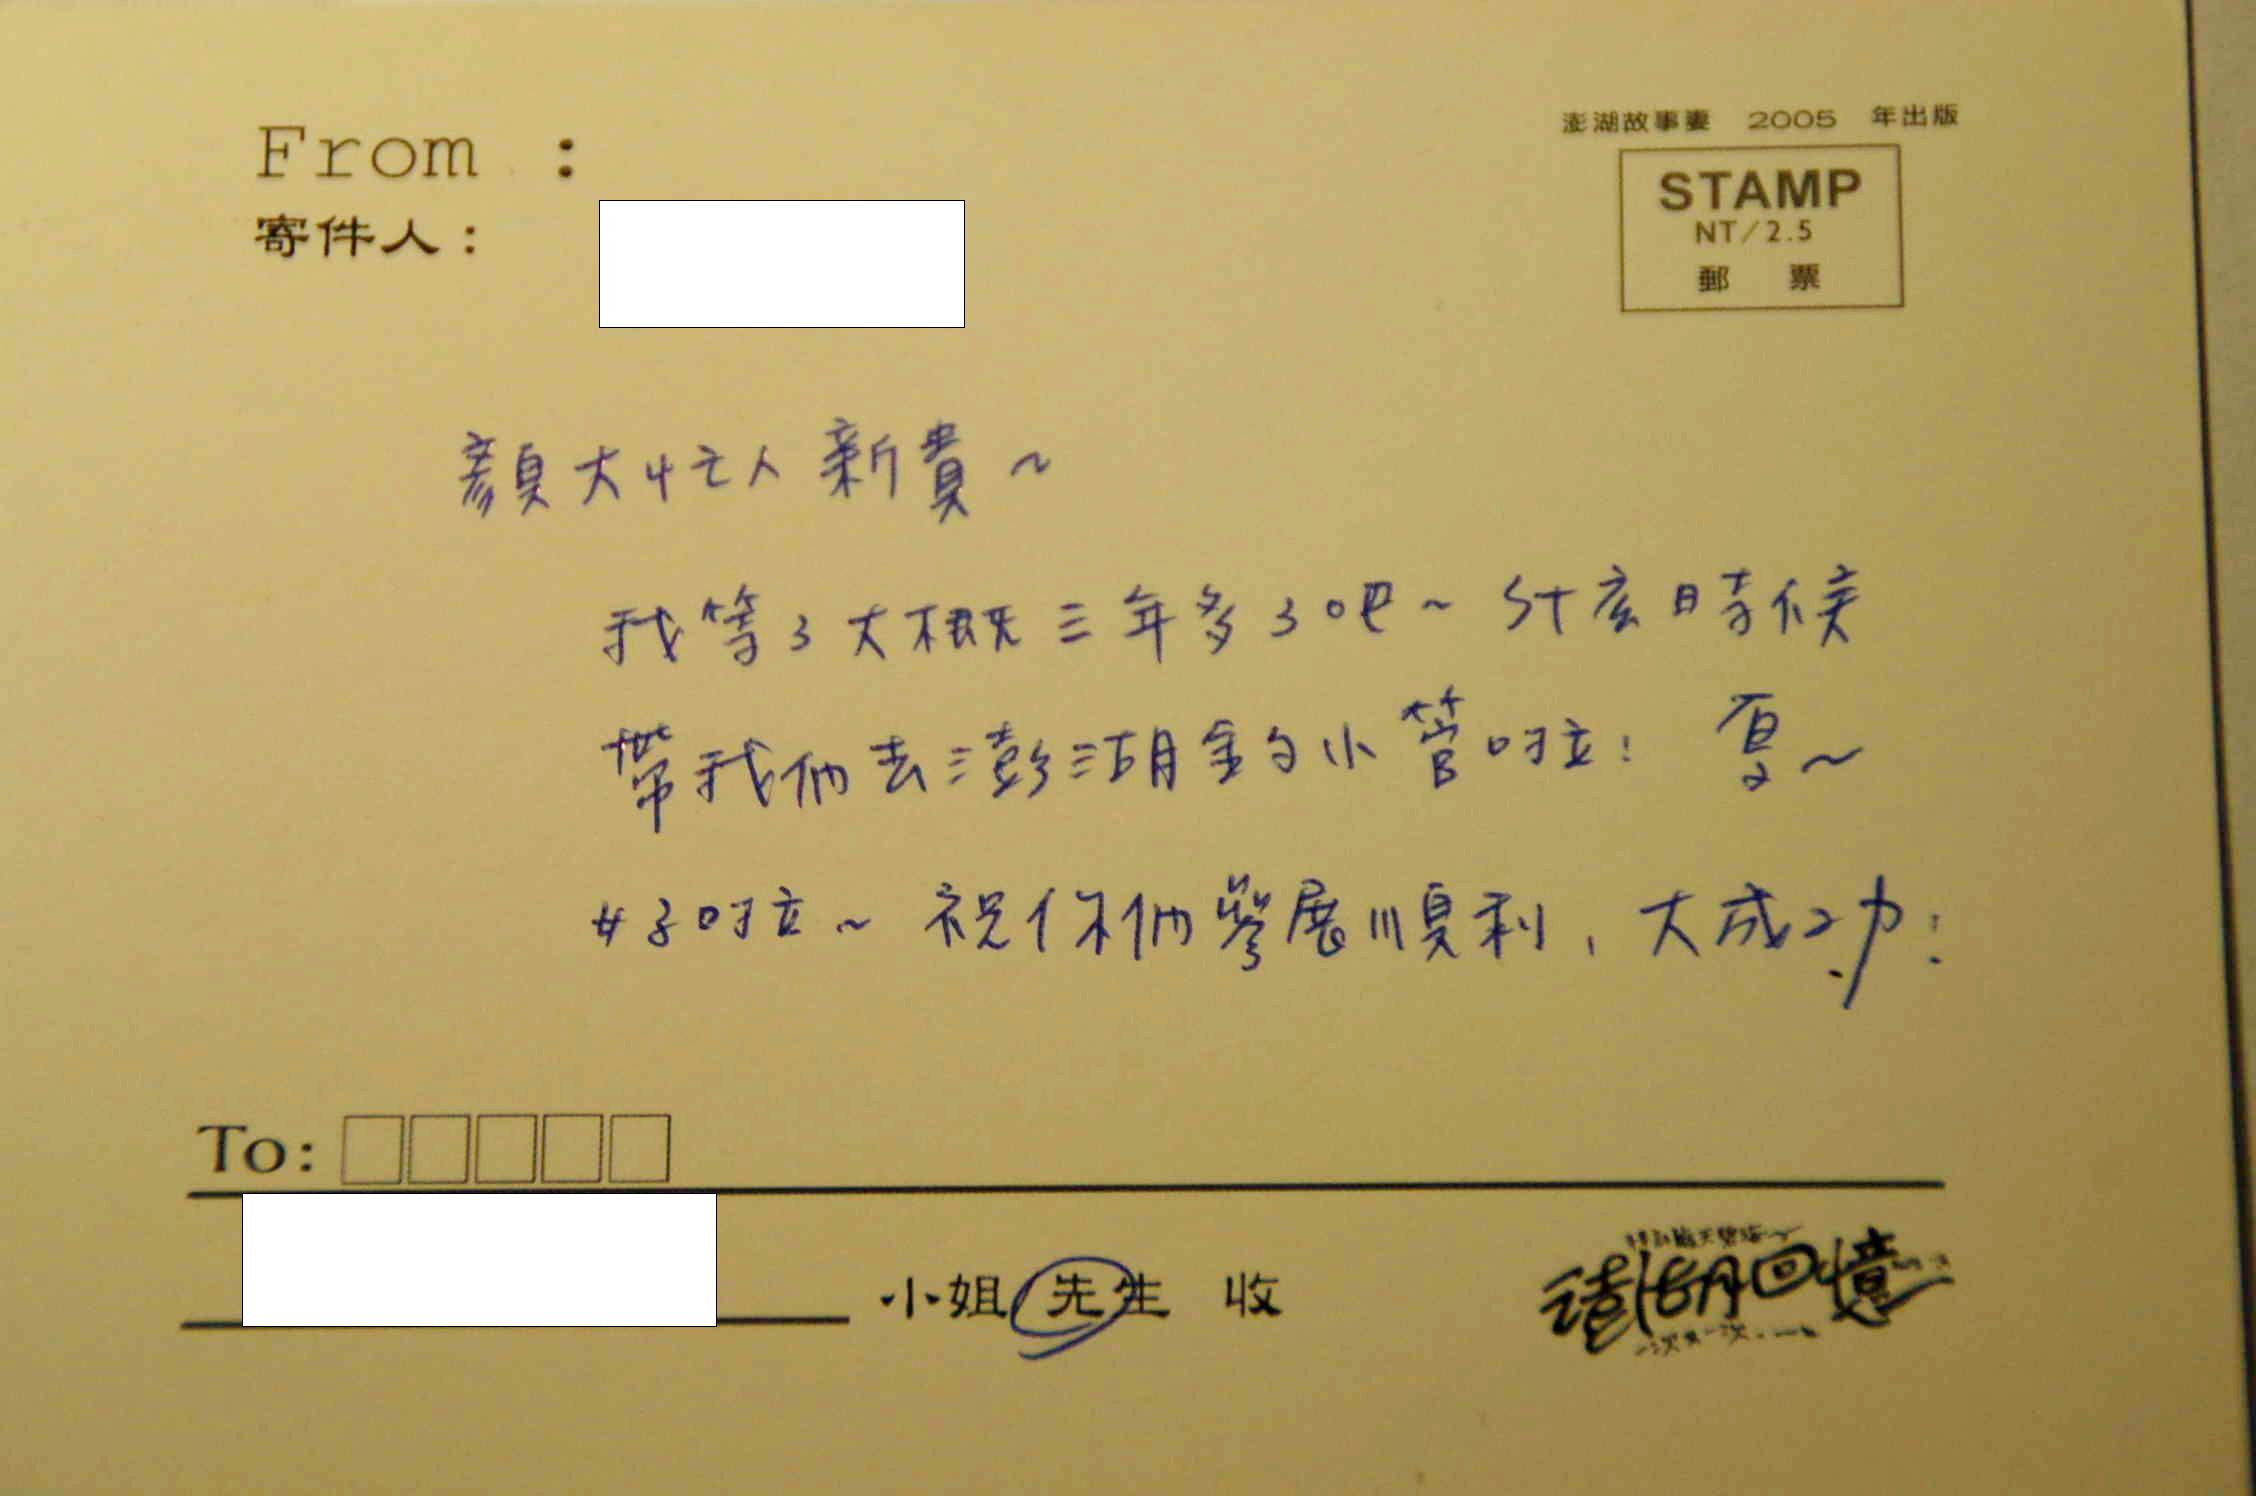 From :
寄件人:
澎湖故事妻 2005 年出版
STAMP
NT/2.5
郵 票
顏大忙人新貴~
我等了大概三年多了吧~什麼時候
帶我們去澎湖釣小管啦! 夏~
好啦~祝你們參展順利,大成功!
To:
小姐 先生 收
澎湖回憶
一次又一次